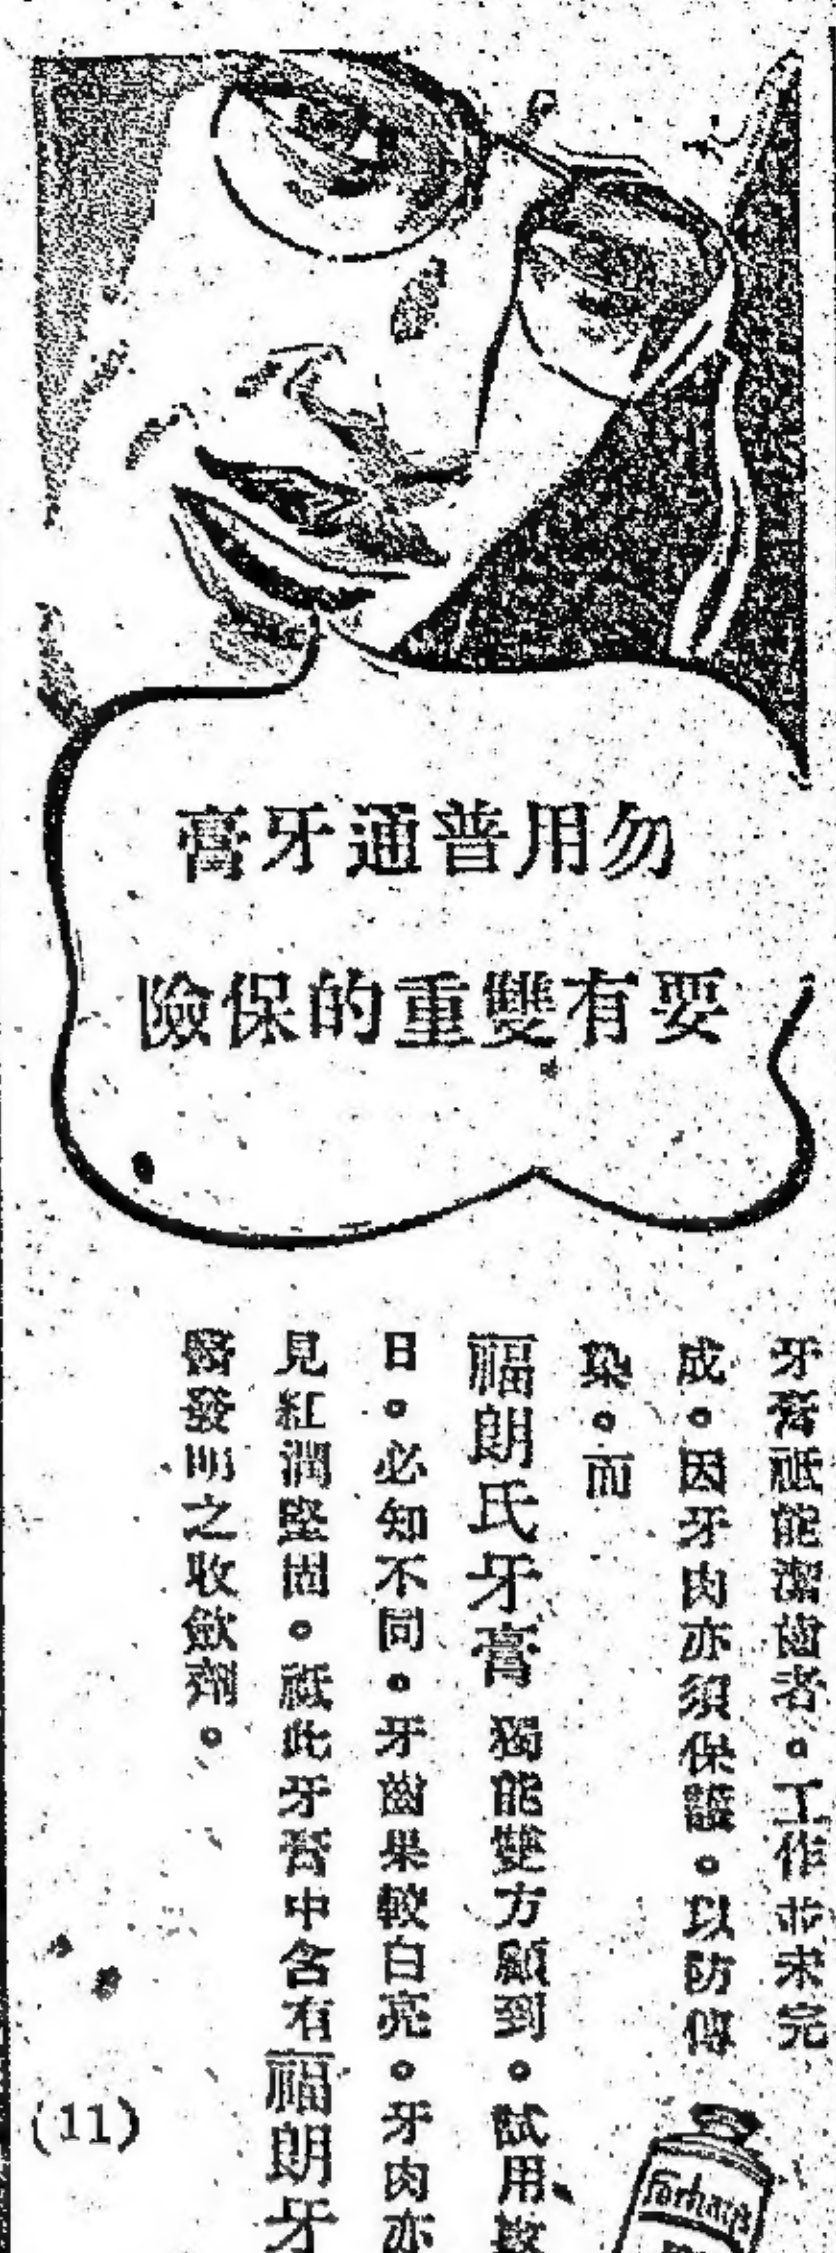 勿用普通牙膏
要有雙重的保險
牙膏祇能潔齒者。工作並未完
成。因牙肉亦須保護。以防傳
染。而
福朗氏牙膏 獨能雙方顧到。試用數
日。必知不同。牙齒果較白亮。牙肉亦
見紅潤堅固。祇此牙膏中含有福朗牙
醫發明之收斂劑。
Forhan's
(11)